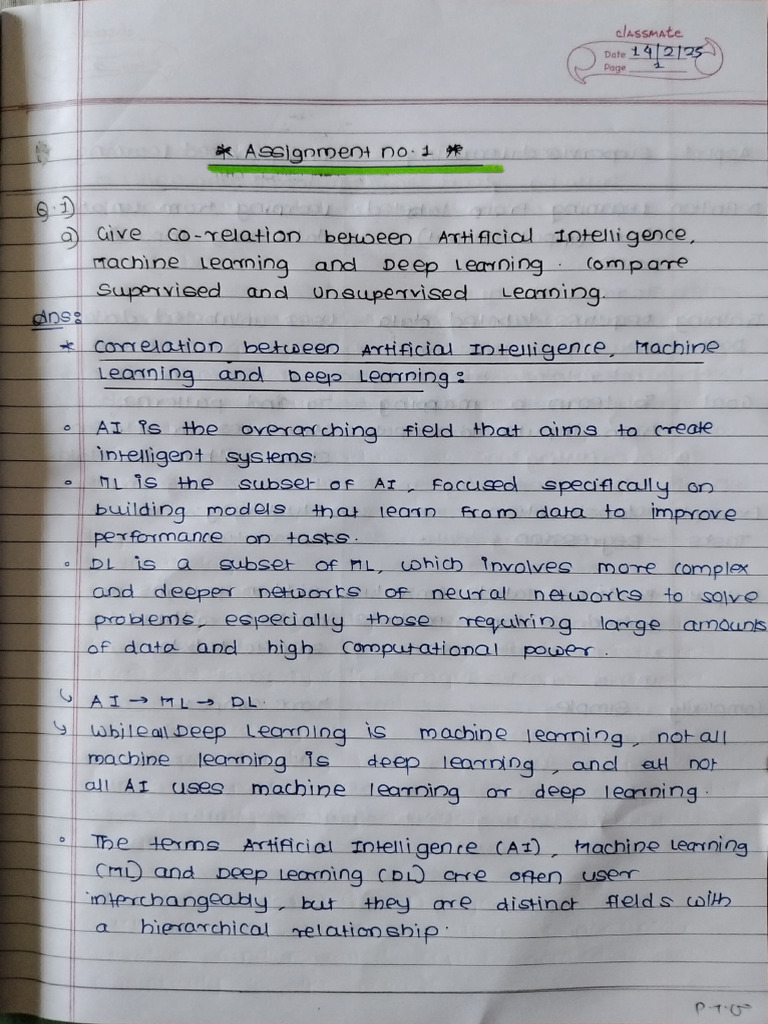 classmate
Date 14/2/25
Page 1
* Assignment no. 1 *
Q.1)
a) Give co-relation between Artificial Intelligence,
Machine Learning and Deep Learning. Compare
Supervised and Unsupervised Learning.
Ans:
* Correlation between Artificial Intelligence, Machine
Learning and Deep Learning:
• AI is the overarching field that aims to create
intelligent systems.
• ML is the subset of AI, focused specifically on
building models that learn from data to improve
performance on tasks.
• DL is a subset of ML, which involves more complex
and deeper networks of neural networks to solve
problems, especially those requiring large amounts
of data and high computational power.
↳ AI → ML → DL.
↳ While all Deep Learning is machine learning, not all
machine learning is deep learning, and not
all AI uses machine learning or deep learning.
• The terms Artificial Intelligence (AI), Machine Learning
(ML) and Deep Learning (DL) are often user
interchangeably, but they are distinct fields with
a hierarchical relationship.
P.T.O